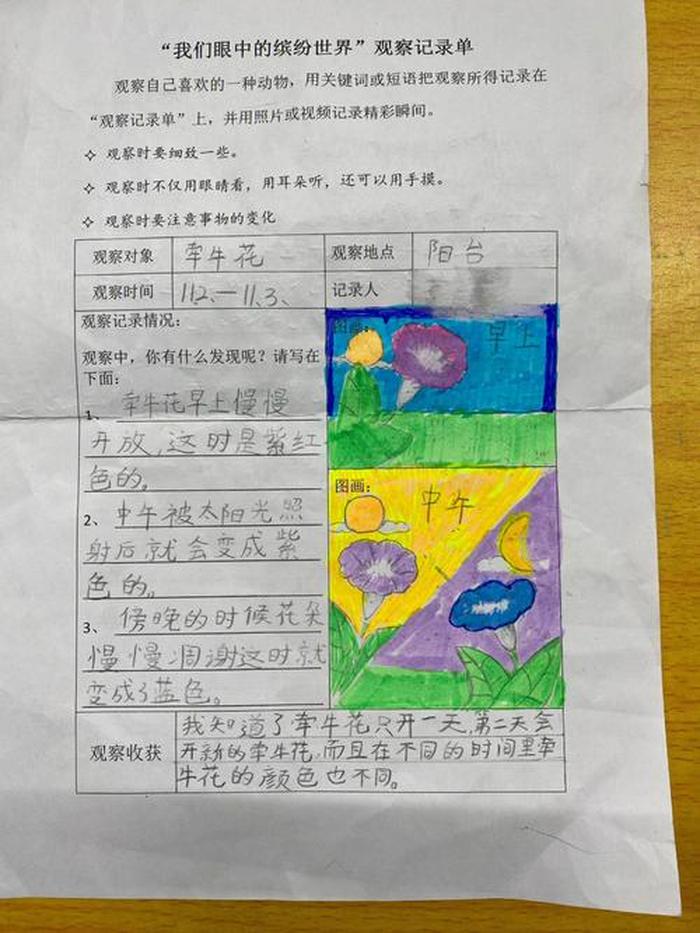 “我们眼中的缤纷世界”观察记录单
观察自己喜欢的一种动物，用关键词或短语把观察所得记录在
“观察记录单”上，并用照片或视频记录精彩瞬间。
✧ 观察时要细致一些。
✧ 观察时不仅用眼睛看，用耳朵听，还可以用手摸。
✧ 观察时要注意事物的变化
观察对象 牵牛花 观察地点 阳台
观察时间 11.2.—11.3. 记录人
观察记录情况：
观察中，你有什么发现呢？请写在
下面：
1、 牵牛花早上慢慢
开放，这时是紫红
色的。
2、中午被太阳光照
射后就会变成紫
色的。
3、 傍晚的时候花朵
慢慢凋谢这时就
变成了蓝色。
图画：
早上
图画：
中午
观察收获
我知道了牵牛花只开一天，第二天会
开新的牵牛花，而且在不同的时间里牵
牛花的颜色也不同。